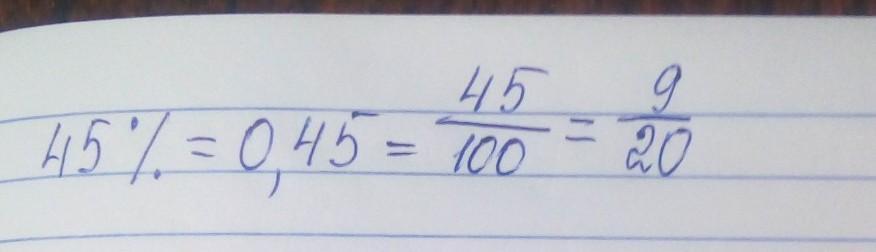 45% = 0,45 = 45/100 = 9/20